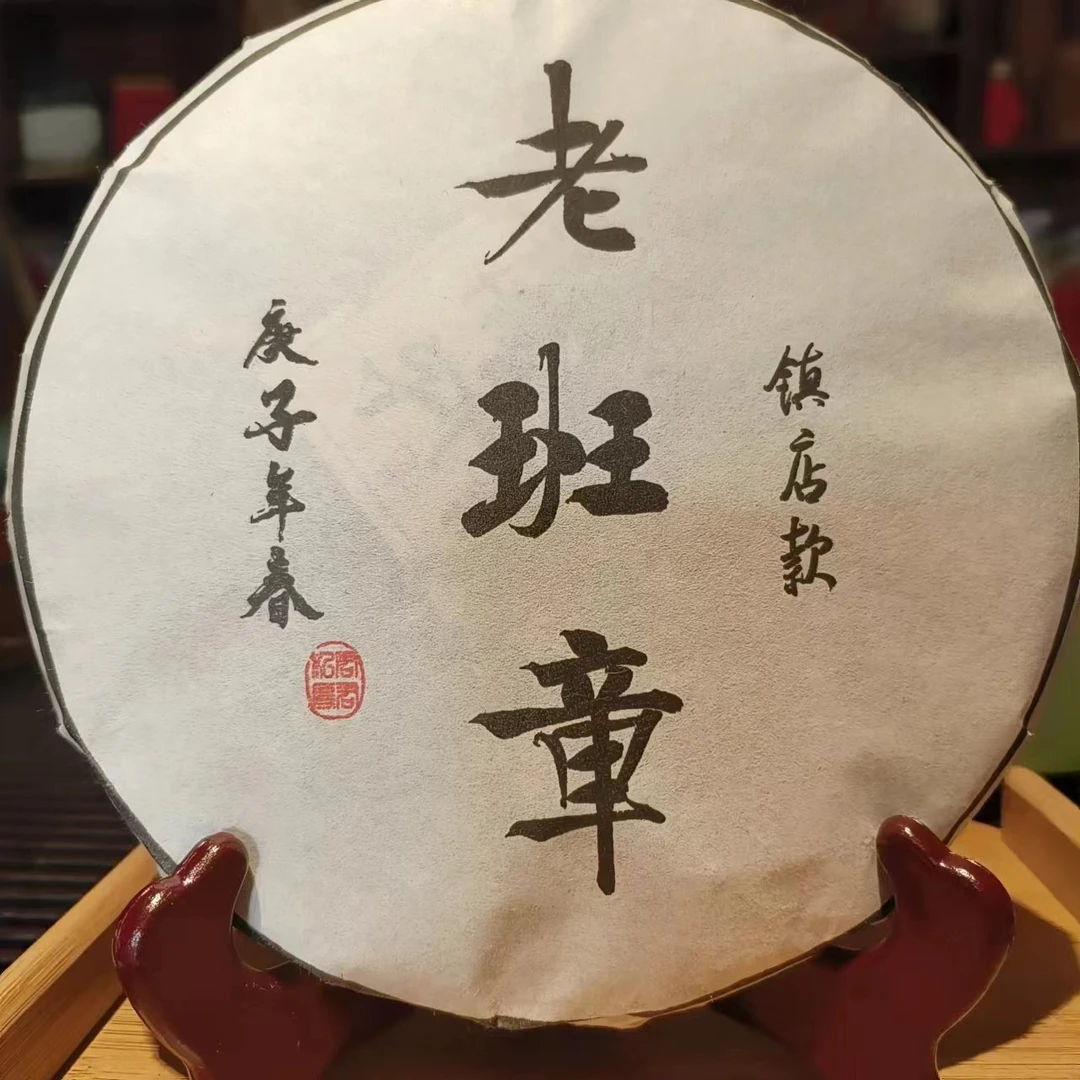 镇店款
老班章
庚子年春